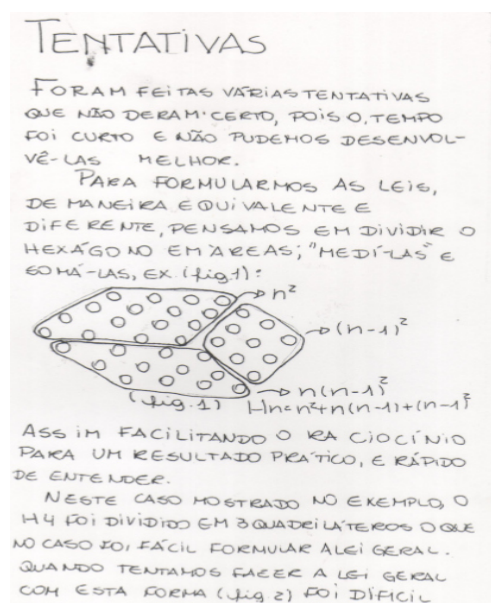 TENTATIVAS
FORAM FEITAS VÁRIAS TENTATIVAS
QUE NÃO DERAM CERTO, POIS O TEMPO
FOI CURTO E NÃO PUDEMOS DESENVOL-
VÊ-LAS MELHOR.
PARA FORMULARMOS AS LEIS,
DE MANEIRA EQUIVALENTE E
DIFERENTE, PENSAMOS EM DIVIDIR O
HEXÁGONO EM ÁREAS; "MEDÍ-LAS" E
SOMÁ-LAS, EX. (fig.1):
n²
(n-1)²
n(n-1)
(fig.1) Hn=n²+n(n-1)+(n-1)²
ASSIM FACILITANDO O RACIOCÍNIO
PARA UM RESULTADO PRÁTICO, E RÁPIDO
DE ENTENDER.
NESTE CASO MOSTRADO NO EXEMPLO, O
H4 FOI DIVIDIDO EM 3 QUADRILÁTEROS O QUE
NO CASO FOI FÁCIL FORMULAR A LEI GERAL.
QUANDO TENTAMOS FAZER A LEI GERAL
COM ESTA FORMA (fig.2) FOI DIFICIL